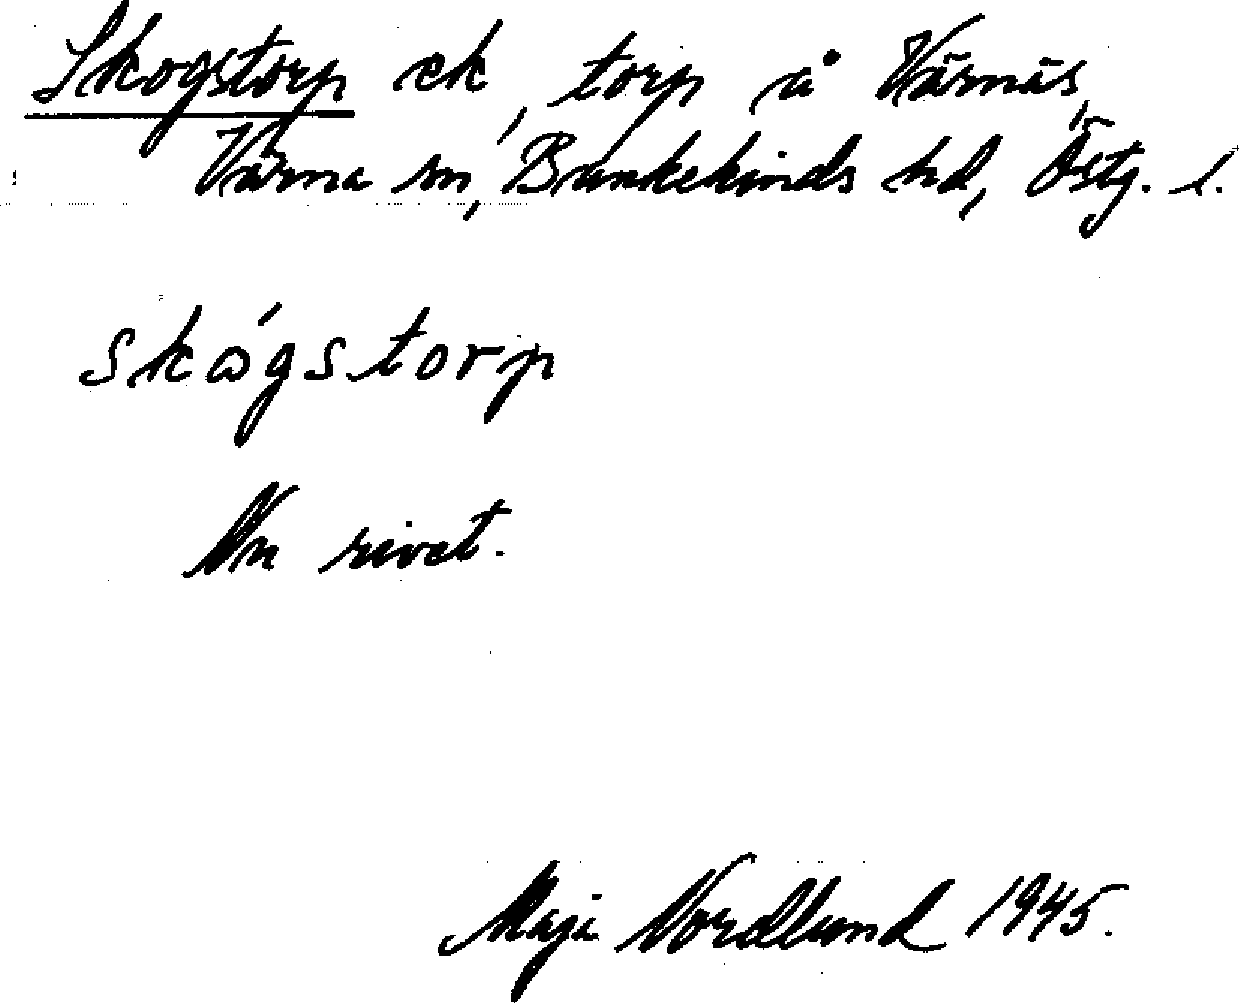 Skogstorp ek, torp å Värnäs,
Värna sn, Bankekinds hd, Östg. l.
skǿgstorp
Nu rivet.
Maja Nordlund 1945.